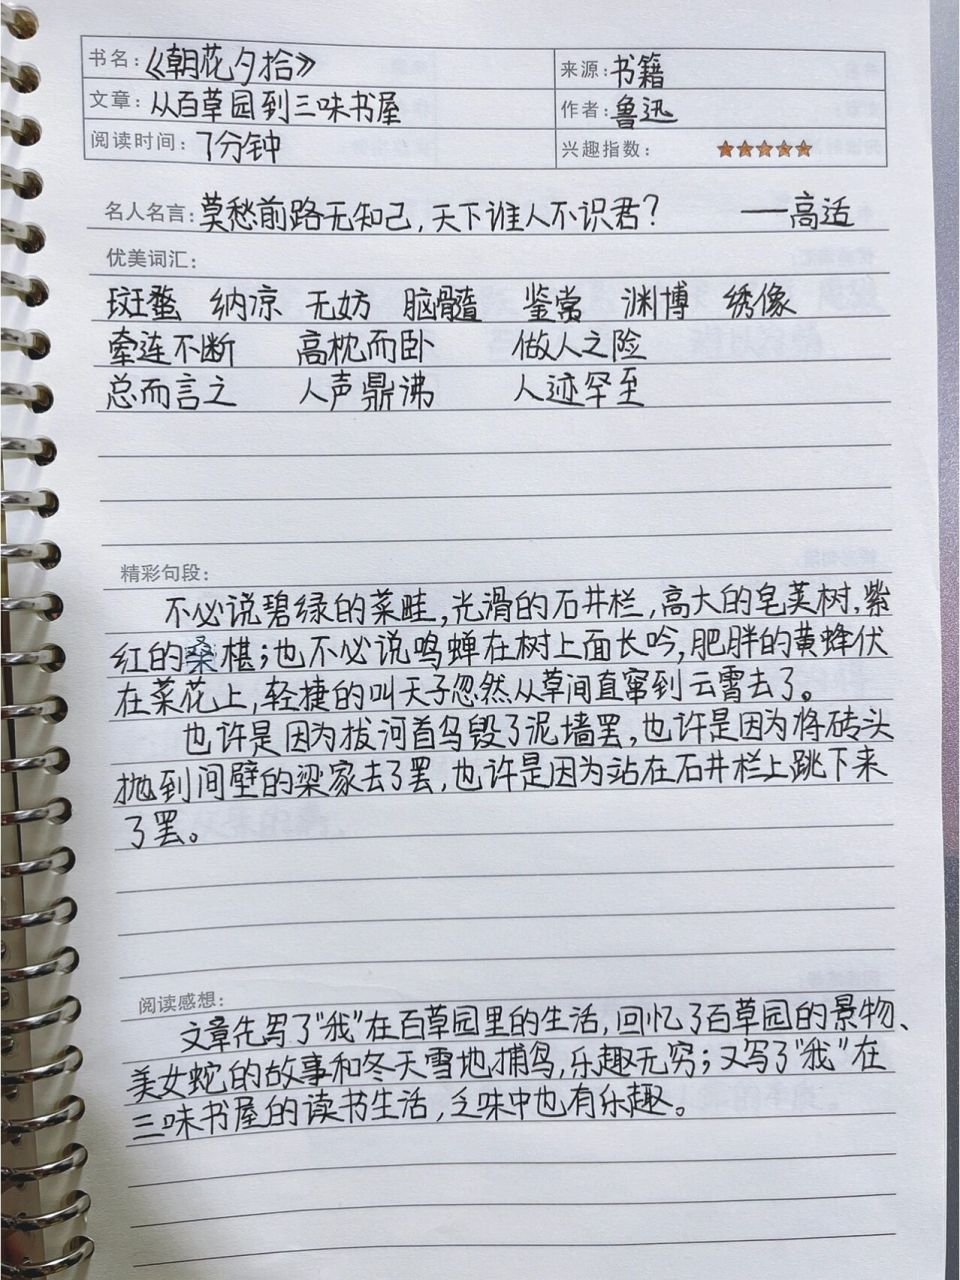 书名：《朝花夕拾》 来源：书籍
文章：从百草园到三味书屋 作者：鲁迅
阅读时间：7分钟 兴趣指数：★★★★★
名人名言：莫愁前路无知己，天下谁人不识君？ ——高适
优美词汇：
斑蝥 纳凉 无妨 脑髓 鉴赏 渊博 绣像
牵连不断 高枕而卧 做人之险
总而言之 人声鼎沸 人迹罕至
精彩句段：
不必说碧绿的菜畦，光滑的石井栏，高大的皂荚树，紫
红的桑椹；也不必说鸣蝉在树上面长吟，肥胖的黄蜂伏
在菜花上，轻捷的叫天子忽然从草间直窜到云霄去了。
也许是因为拔河首乌毁了泥墙罢，也许是因为将砖头
抛到间壁的梁家去了罢，也许是因为站在石井栏上跳下来
了罢。
阅读感想：
文章先写了“我”在百草园里的生活，回忆了百草园的景物、
美女蛇的故事和冬天雪地捕鸟，乐趣无穷；又写了“我”在
三味书屋的读书生活，乏味中也有乐趣。